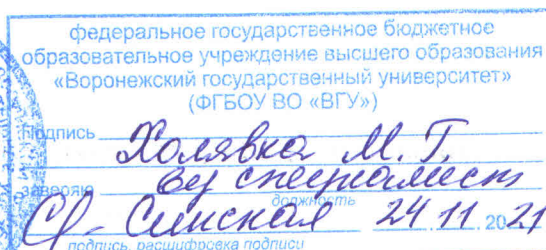 федеральное государственное бюджетное
образовательное учреждение высшего образования
«Воронежский государственный университет»
(ФГБОУ ВО «ВГУ»)
Подпись Холявка М. Г.
заверяю вед специалист
должность
Синская 24 11. 2021
подпись, расшифровка подписи